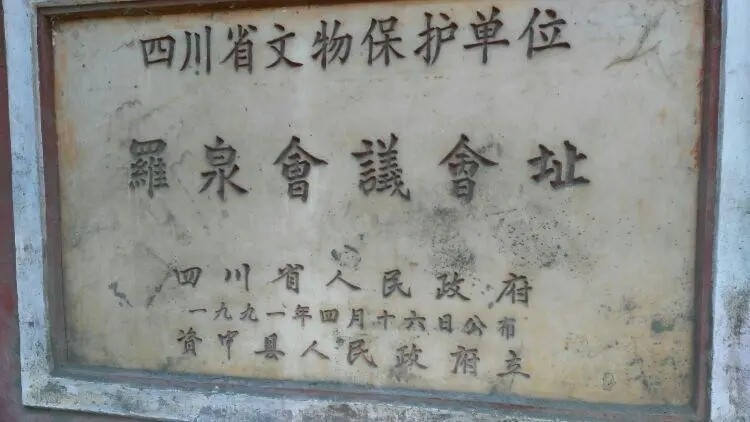 四川省文物保护单位
羅泉會議會址
四川省人民政府
一九九一年四月十六日公布
資中县人民政府立